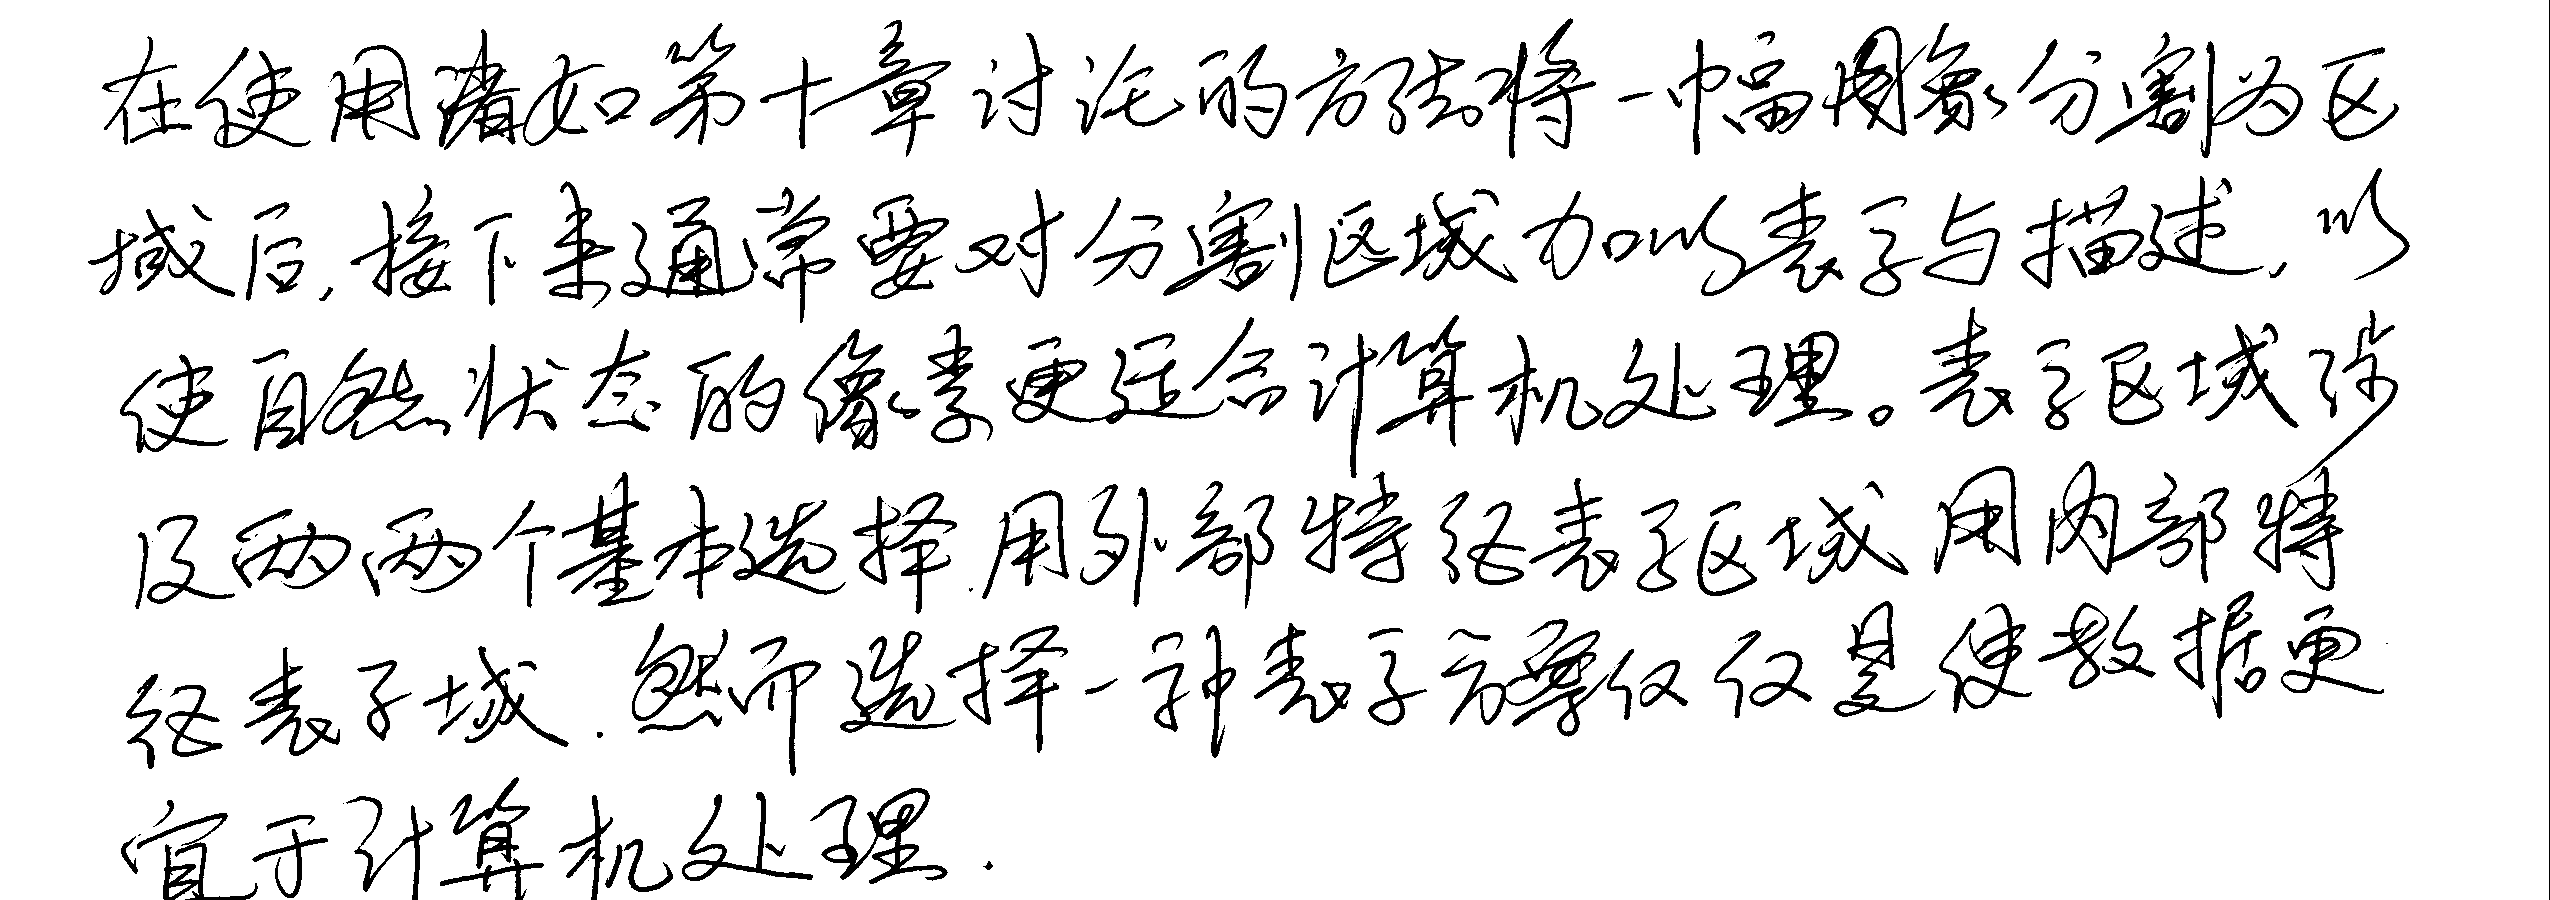 在使用诸如第十章讨论的方法将一幅图象分割为区
域后,接下来通常要对分割区域加以表示与描述,以
使自然状态的像素更适合计算机处理。表示区域涉
及两两个基本选择.用外部特征表示区域用内部特
征表示域.然而选择一种表示方案仅仅是使数据更
宜于计算机处理.